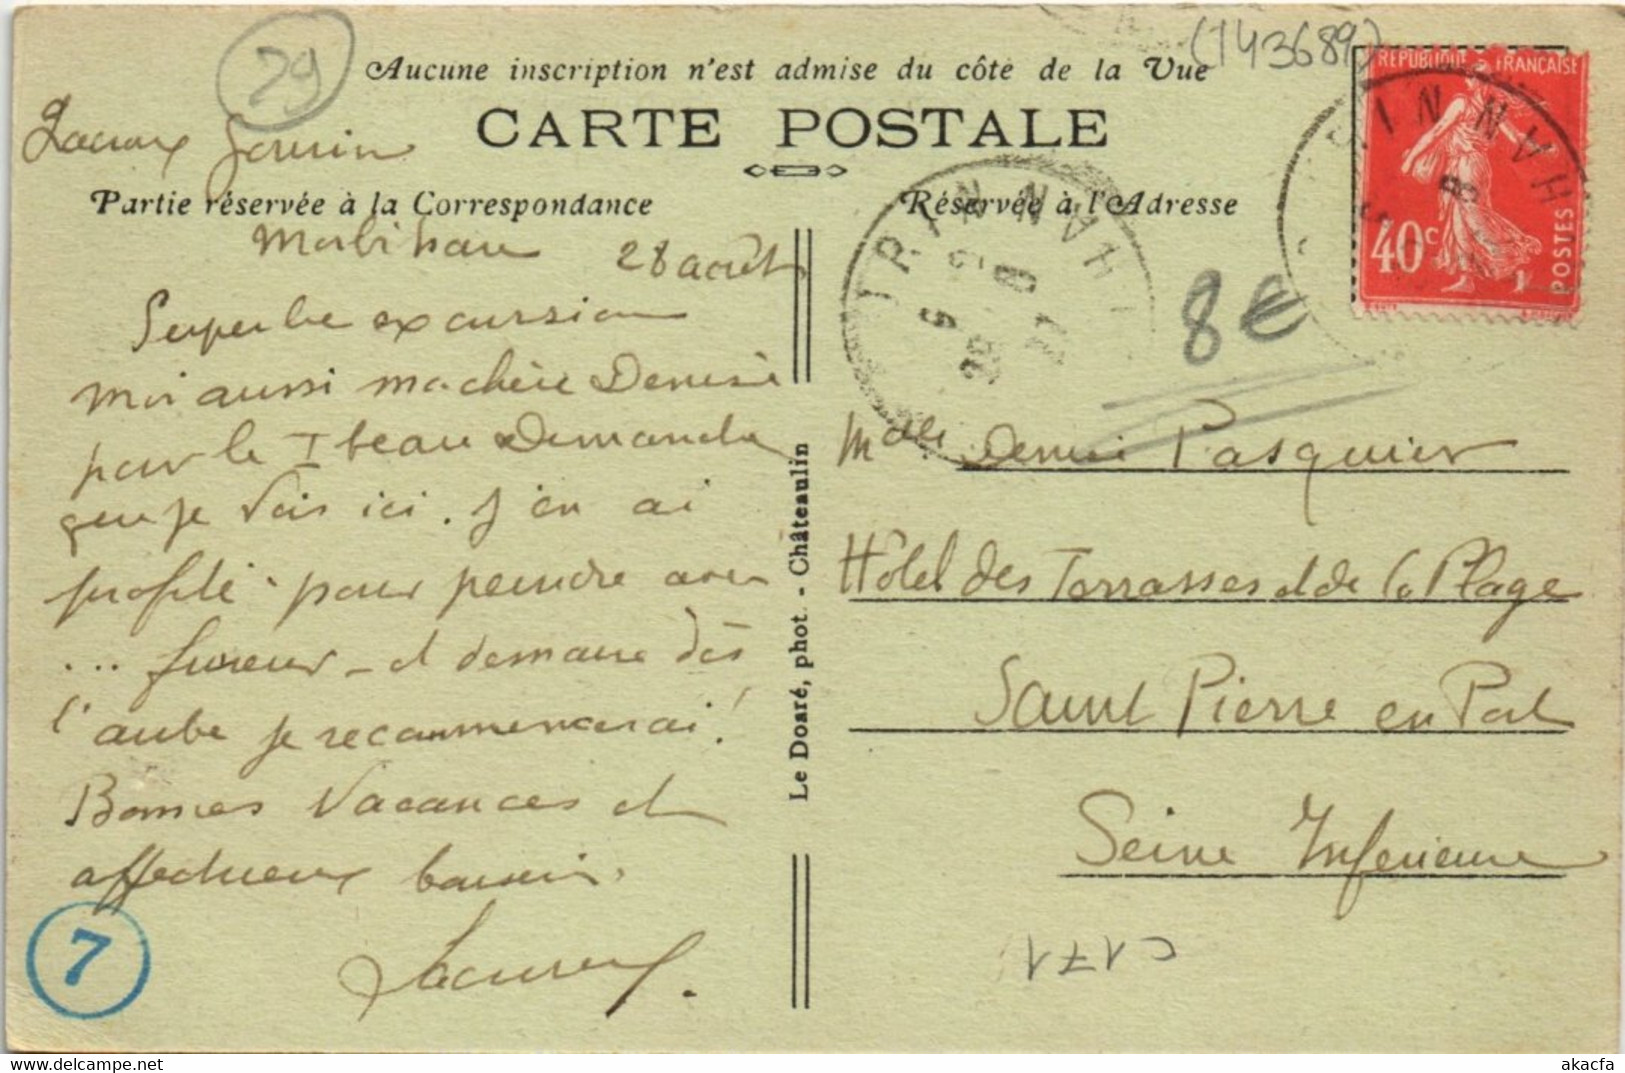 (143689)
29
Aucune inscription n'est admise du côté de la Vue
CARTE POSTALE
Partie réservée à la Correspondance
Réservée à l'Adresse
RÉPUBLIQUE FRANÇAISE
40c
POSTES
Morbihan 28 août
Superbe excursion
moi aussi ma chère Denise
par le beau Dimanche
que je vois ici. J'en ai
profité pour peindre avec
... fureur - et demain dès
l'aube je recommencerai!
Bonnes Vacances et
affectueux baisers.
7
Le Doaré, phot. - Châteaulin
8€
Melle Denise Pasquier
Hôtel des Terrasses et de la Plage
Saint Pierre en Port
Seine Inférieure
C171
akacfa